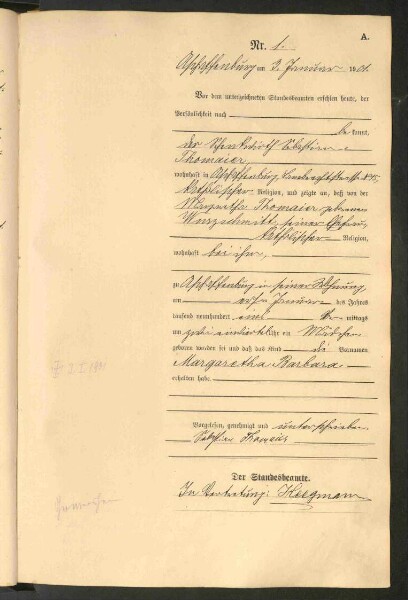 A.
Nr. 1.
Aschaffenburg am 2. Januar 1901.
Vor dem unterzeichneten Standesbeamten erschien heute, der
Persönlichkeit nach
be kannt,
der Schenkwirth Sebastian
Thomaier,
wohnhaft in Aschaffenburg,
katholischer Religion, und zeigte an, daß von der
Margaretha Thomaier, geborenen
seiner Ehefrau,
katholischer Religion,
wohnhaft bei ihm,
zu Aschaffenburg in seiner Wohnung
am Januar des Jahres
tausend neunhundert eins mittags
um Uhr ein Mädchen
geboren worden sei und daß das Kind die Vornamen
Margaretha Barbara
erhalten habe
Vorgelesen, genehmigt und unterschrieben
Sebastian Thomaier
Der Standesbeamte.
In Vertretung: